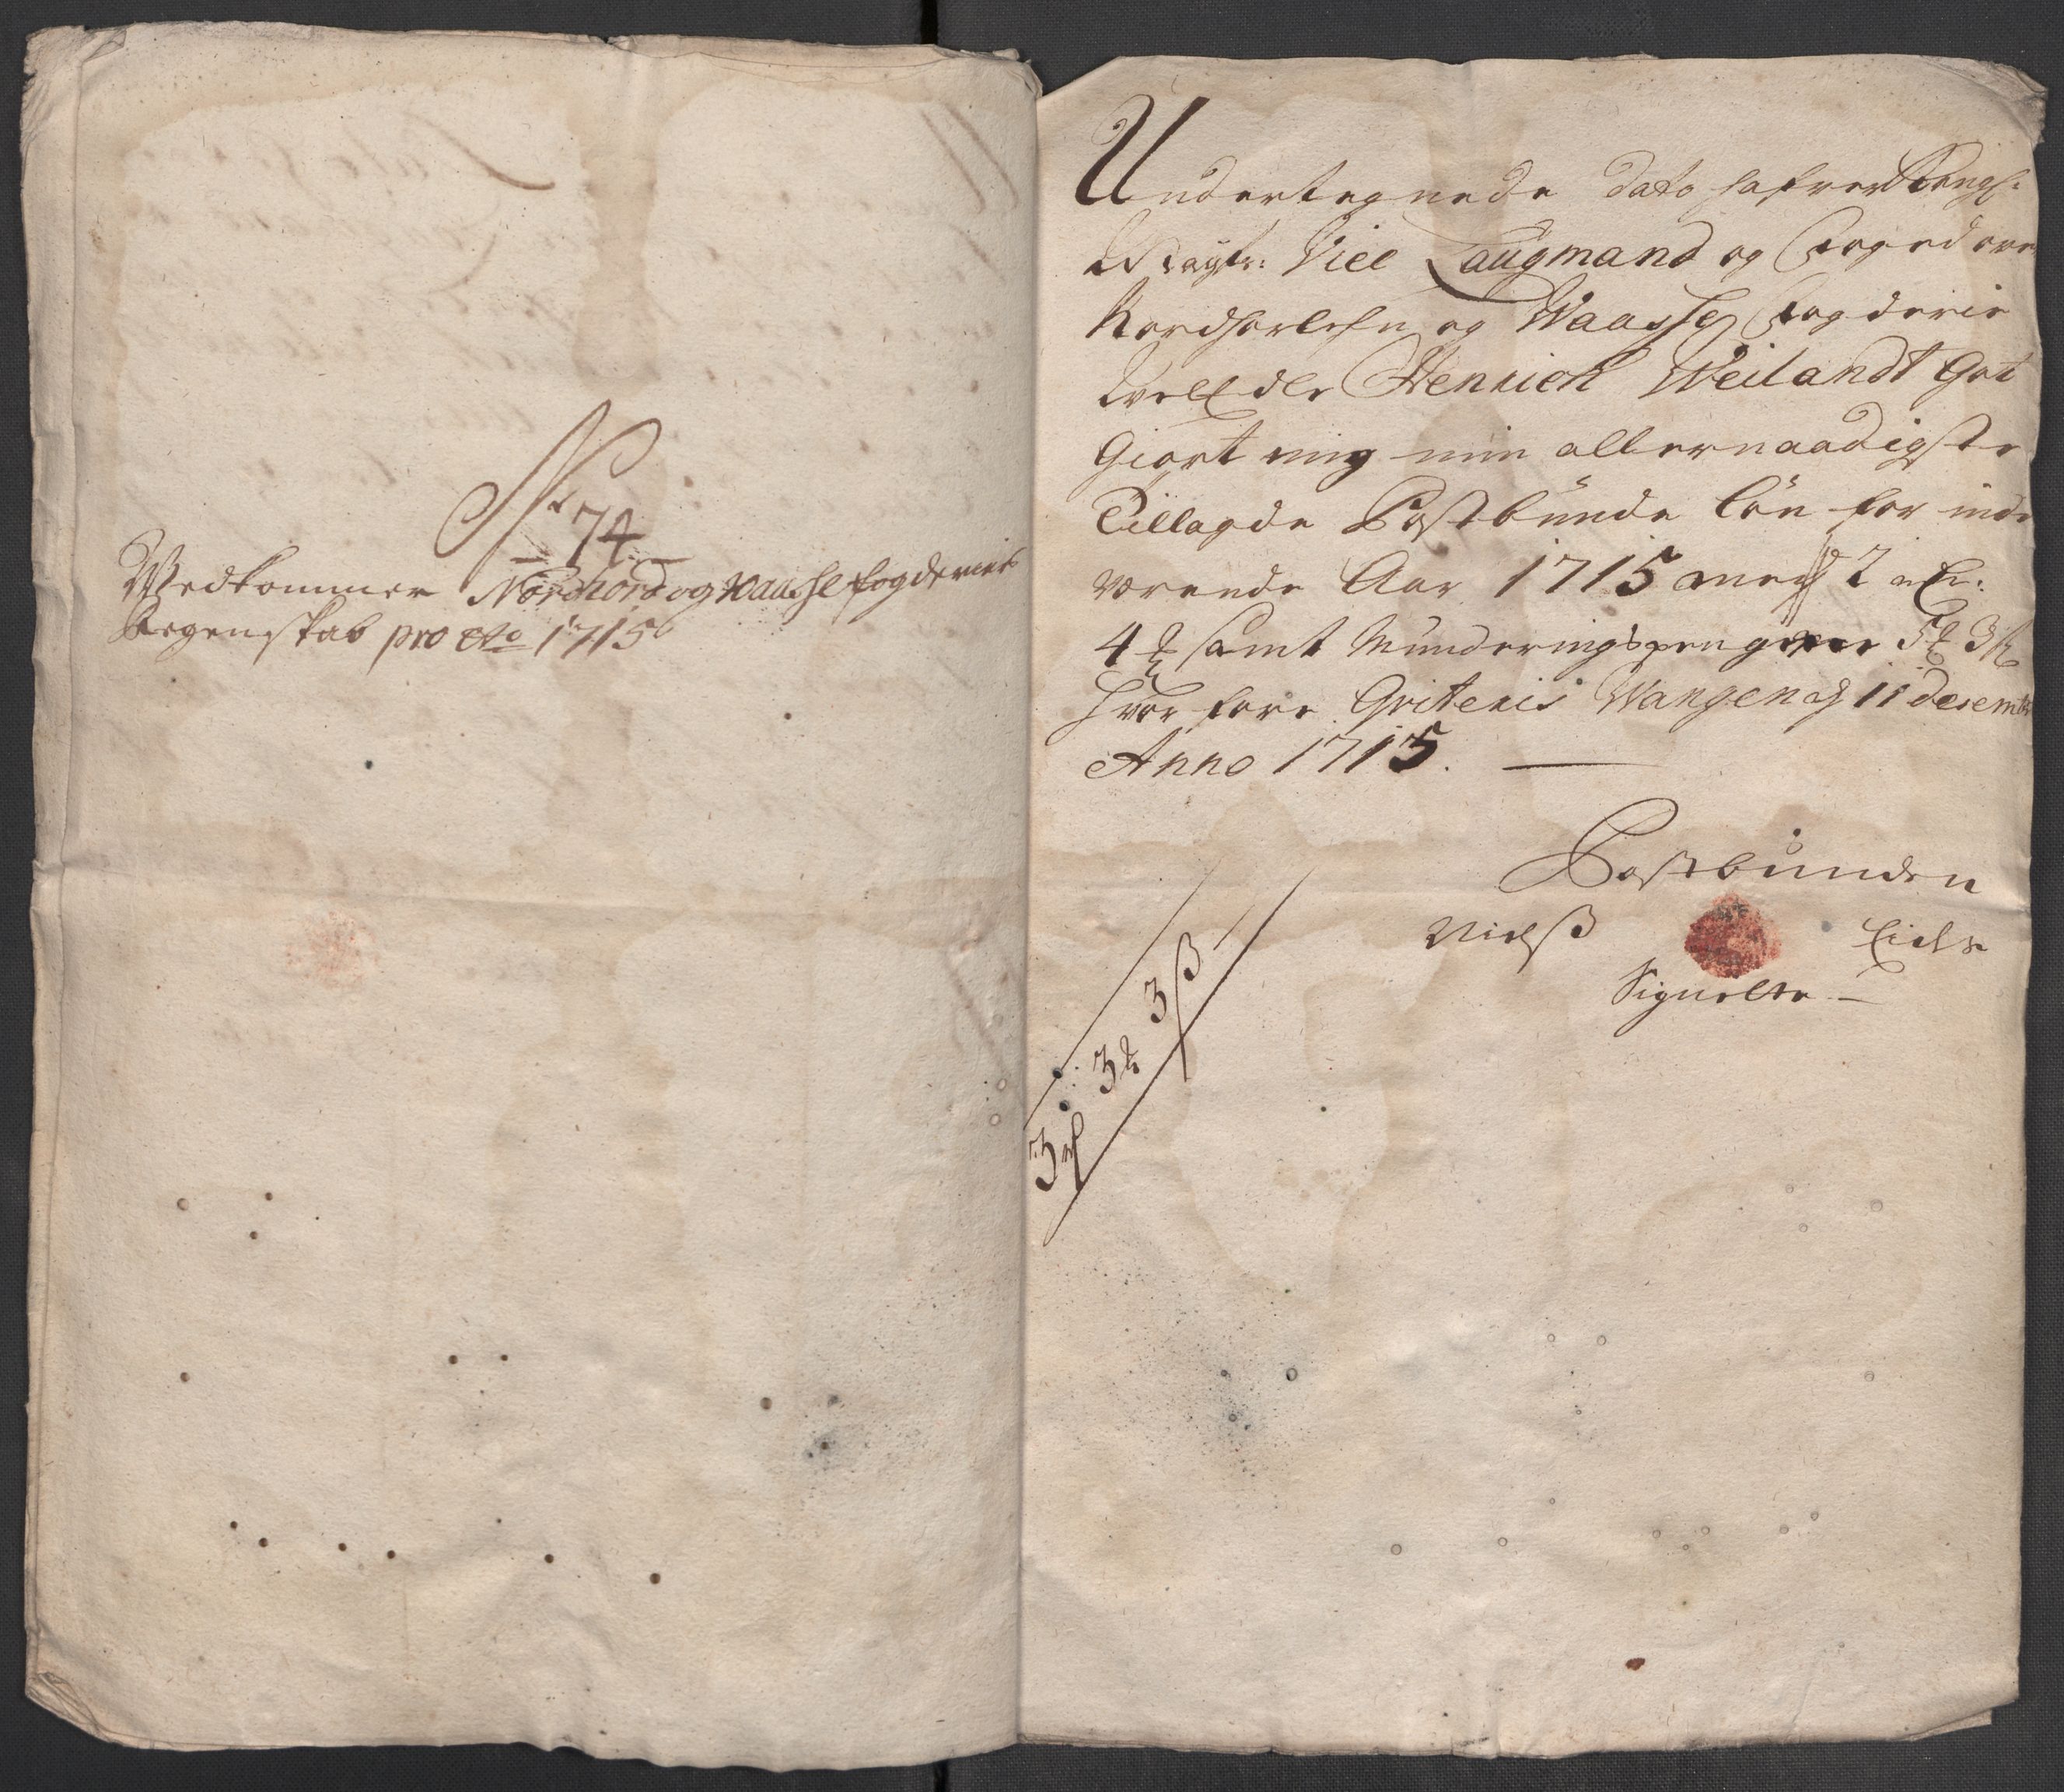 No 74
Vedkommer Nordhord og Waasse fogderies
Regenskab pro Ao 1715
Undertegnede dato hafver Kongl:
Mayts: Vice Laugmand og Foged ofver
Nordhorlehn og Waasse Fogderie
Velædle Henrich Weilandt Got
Giort mig min allernaadigste
Tillagde Postbunde Løn for inde
værende Aar 1715 med 2 rdr:
4 ß samt Munderingspenge 5 ß
hvorfore Qviteris Wangen d 11 decembr
Anno 1715.
Postbunden
Nielß Eide
Signette
3 rd 3 3 ß